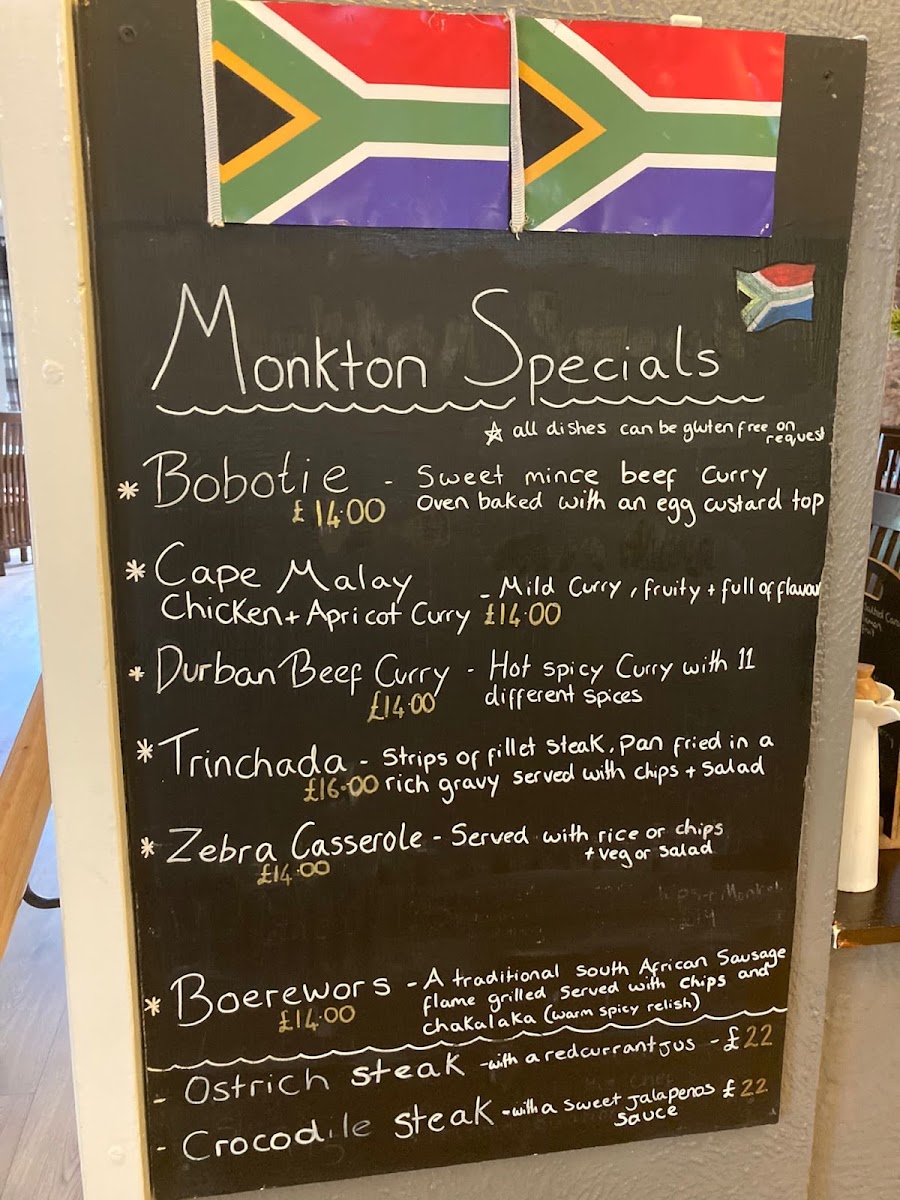 Monkton Specials
☆ all dishes can be gluten free on request
* Bobotie - Sweet mince beef curry
£14.00 Oven baked with an egg custard top
* Cape Malay - Mild Curry, fruity + full of flavour
Chicken + Apricot Curry £14.00
* Durban Beef Curry - Hot spicy Curry with 11
£14.00 different spices
* Trinchada - Strips of fillet steak, pan fried in a
£16.00 rich gravy served with chips + salad
* Zebra Casserole - Served with rice or chips
£14.00 + veg or salad
* Boerewors - A traditional South African Sausage
flame grilled served with chips and
£14.00 chakalaka (warm spicy relish)
- Ostrich steak - with a redcurrant jus - £22
- Crocodile steak - with a sweet jalapenos £22
sauce